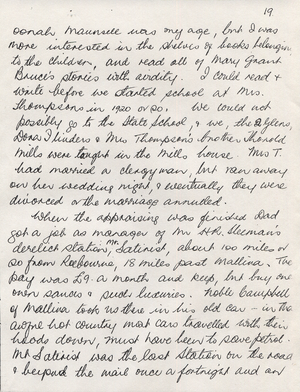 19.
Oonah Maunsell was my age, but I was
more interested in the shelves of books belonging
to the children, and read all of Mary Grant
Bruce's stories with avidity. I could read &
write before we started school at Mrs.
Thompson's in 1920 or so. We could not
possibly go to the State School, & we, the
Dora Flinders & Mrs Thompson's brother Thorold
Mills were taught in the Mills house. Mrs T.
had married a clergyman, but ran away
on her wedding night, & eventually they were
divorced or the marriage annulled.
When the appraising was finished Dad
got a job as manager of Mr H.R. Sleeman's
derelict station, Mt Satirist, about 100 miles or
so from Roebourne, 18 miles past Mallina. The
pay was £9 a month and keep, but buy one's
own sauces & such luxuries. Noble Campbell
of Mallina took us there in his old car - in the
awful hot country most cars travelled with their
hoods down, must have been to save petrol.
Mt Satirist was the last station on the road
& beyond the mail once a fortnight and an